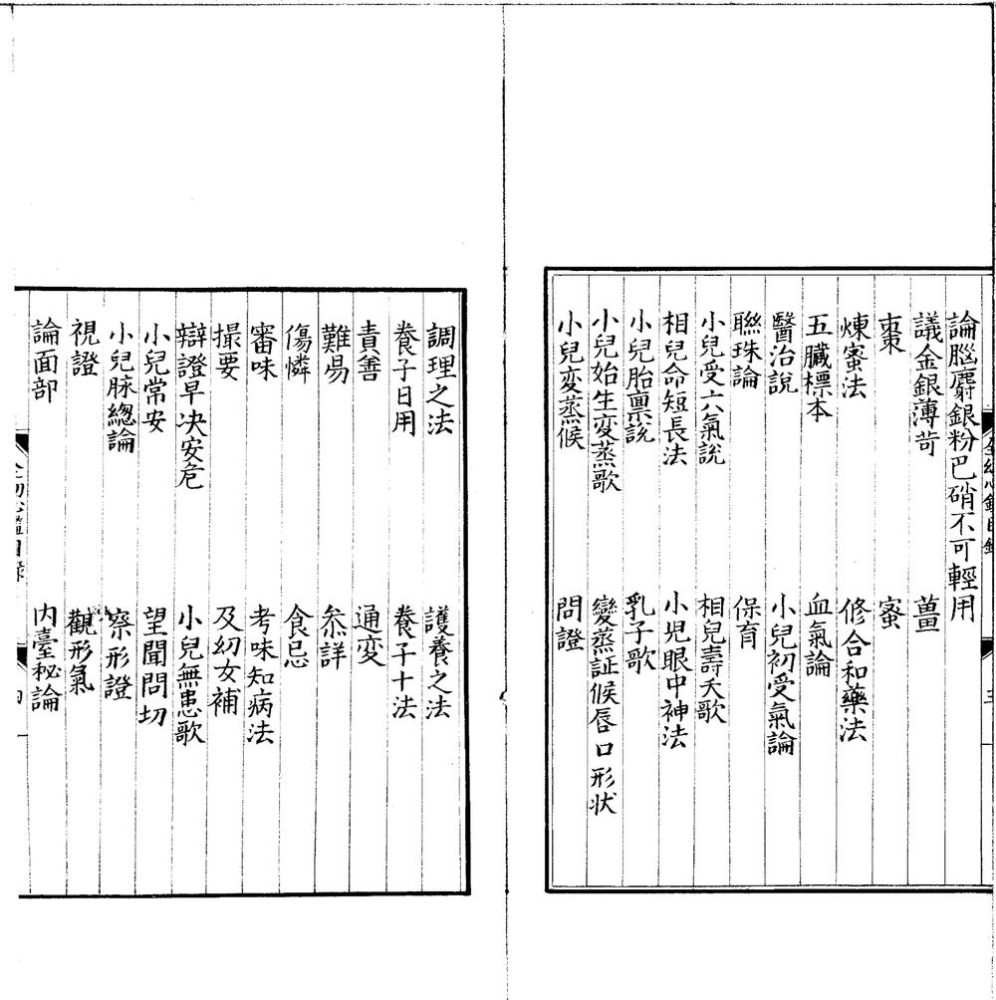 論腦麝銀粉巴硝不可輕用
議金銀薄苛 薑
棗 蜜
煉蜜法 修合和藥法
五臟標本 血氣論
醫治說 小兒初受氣論
聯珠論 保育
小兒受六氣說 相兒壽夭歌
相兒命短長法 小児眼中神法
小兒胎禀說 乳子歌
小兒始生変蒸歌 變蒸証候唇口形狀
小兒変蒸候 問證
調理之法 護養之法
養子日用 養子十法
責善 通变
難易 叅詳
傷憐 食忌
審味 考味知病法
撮要 及幼女補
辯證早决安危 小兒無患歌
小兒常安 望聞問切
小兒脉總論 察形證
視證 觀形氣
論面部 內臺秘論